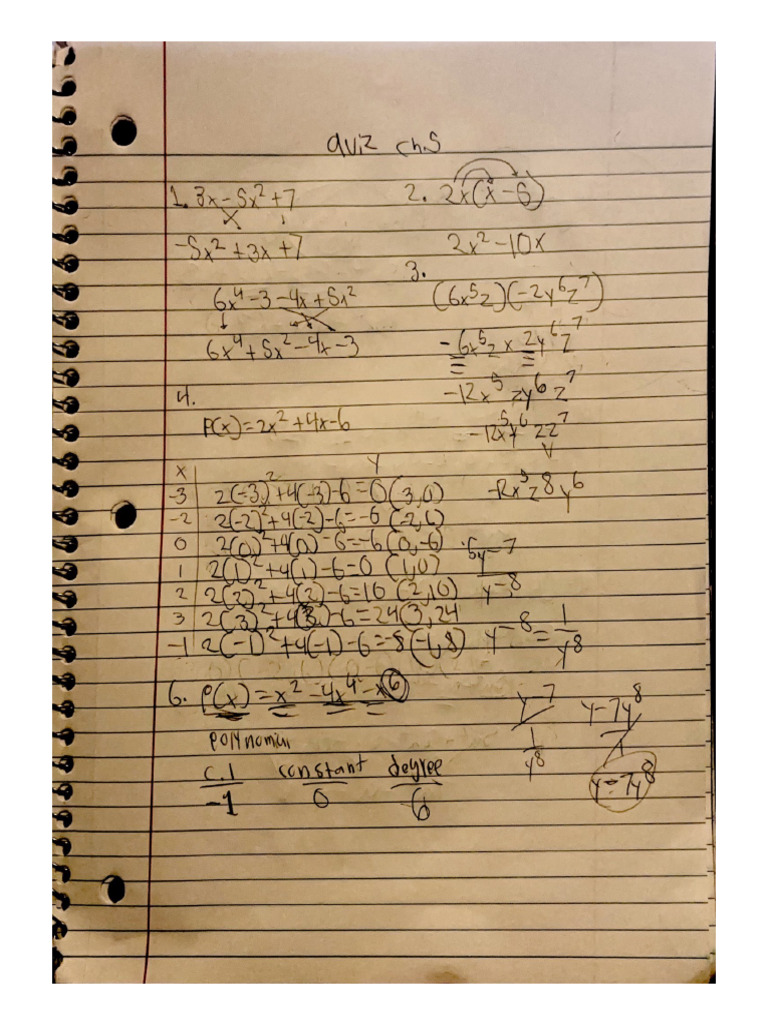 quiz ch.5
1. 3x - 5x² + 7
-5x² + 3x + 7
6x⁴ - 3 - 4x + 5x²
6x⁴ + 5x² - 4x - 3
2. 2x(x - 5)
2x² - 10x
3.
(6x⁵z)(-2y⁶z⁷)
-6x⁵z x 2y⁶z⁷
-12x⁵zy⁶z⁷
-12x⁵y⁶zz⁷
-12x⁵z⁸y⁶
4.
P(x) = 2x² + 4x - 6
x | y
-3 | 2(-3)² + 4(-3) - 6 = 0 (3,0)
-2 | 2(-2)² + 4(-2) - 6 = -6 (-2,6)
0 | 2(0)² + 4(0) - 6 = -6 (0,-6)
1 | 2(1)² + 4(1) - 6 = 0 (1,0)
2 | 2(2)² + 4(2) - 6 = 10 (2,10)
3 | 2(3)² + 4(3) - 6 = 24 (3,24
-1 | 2(-1)² + 4(-1) - 6 = -8 (-1,8)
5 y-7
y-8
y-8 = 1/y8
y-7
1/y8
y-7y8
1
y-7y8
6. P(x) = x² - 4x⁴ - x⁶
c.l constant degree
-1 0 6